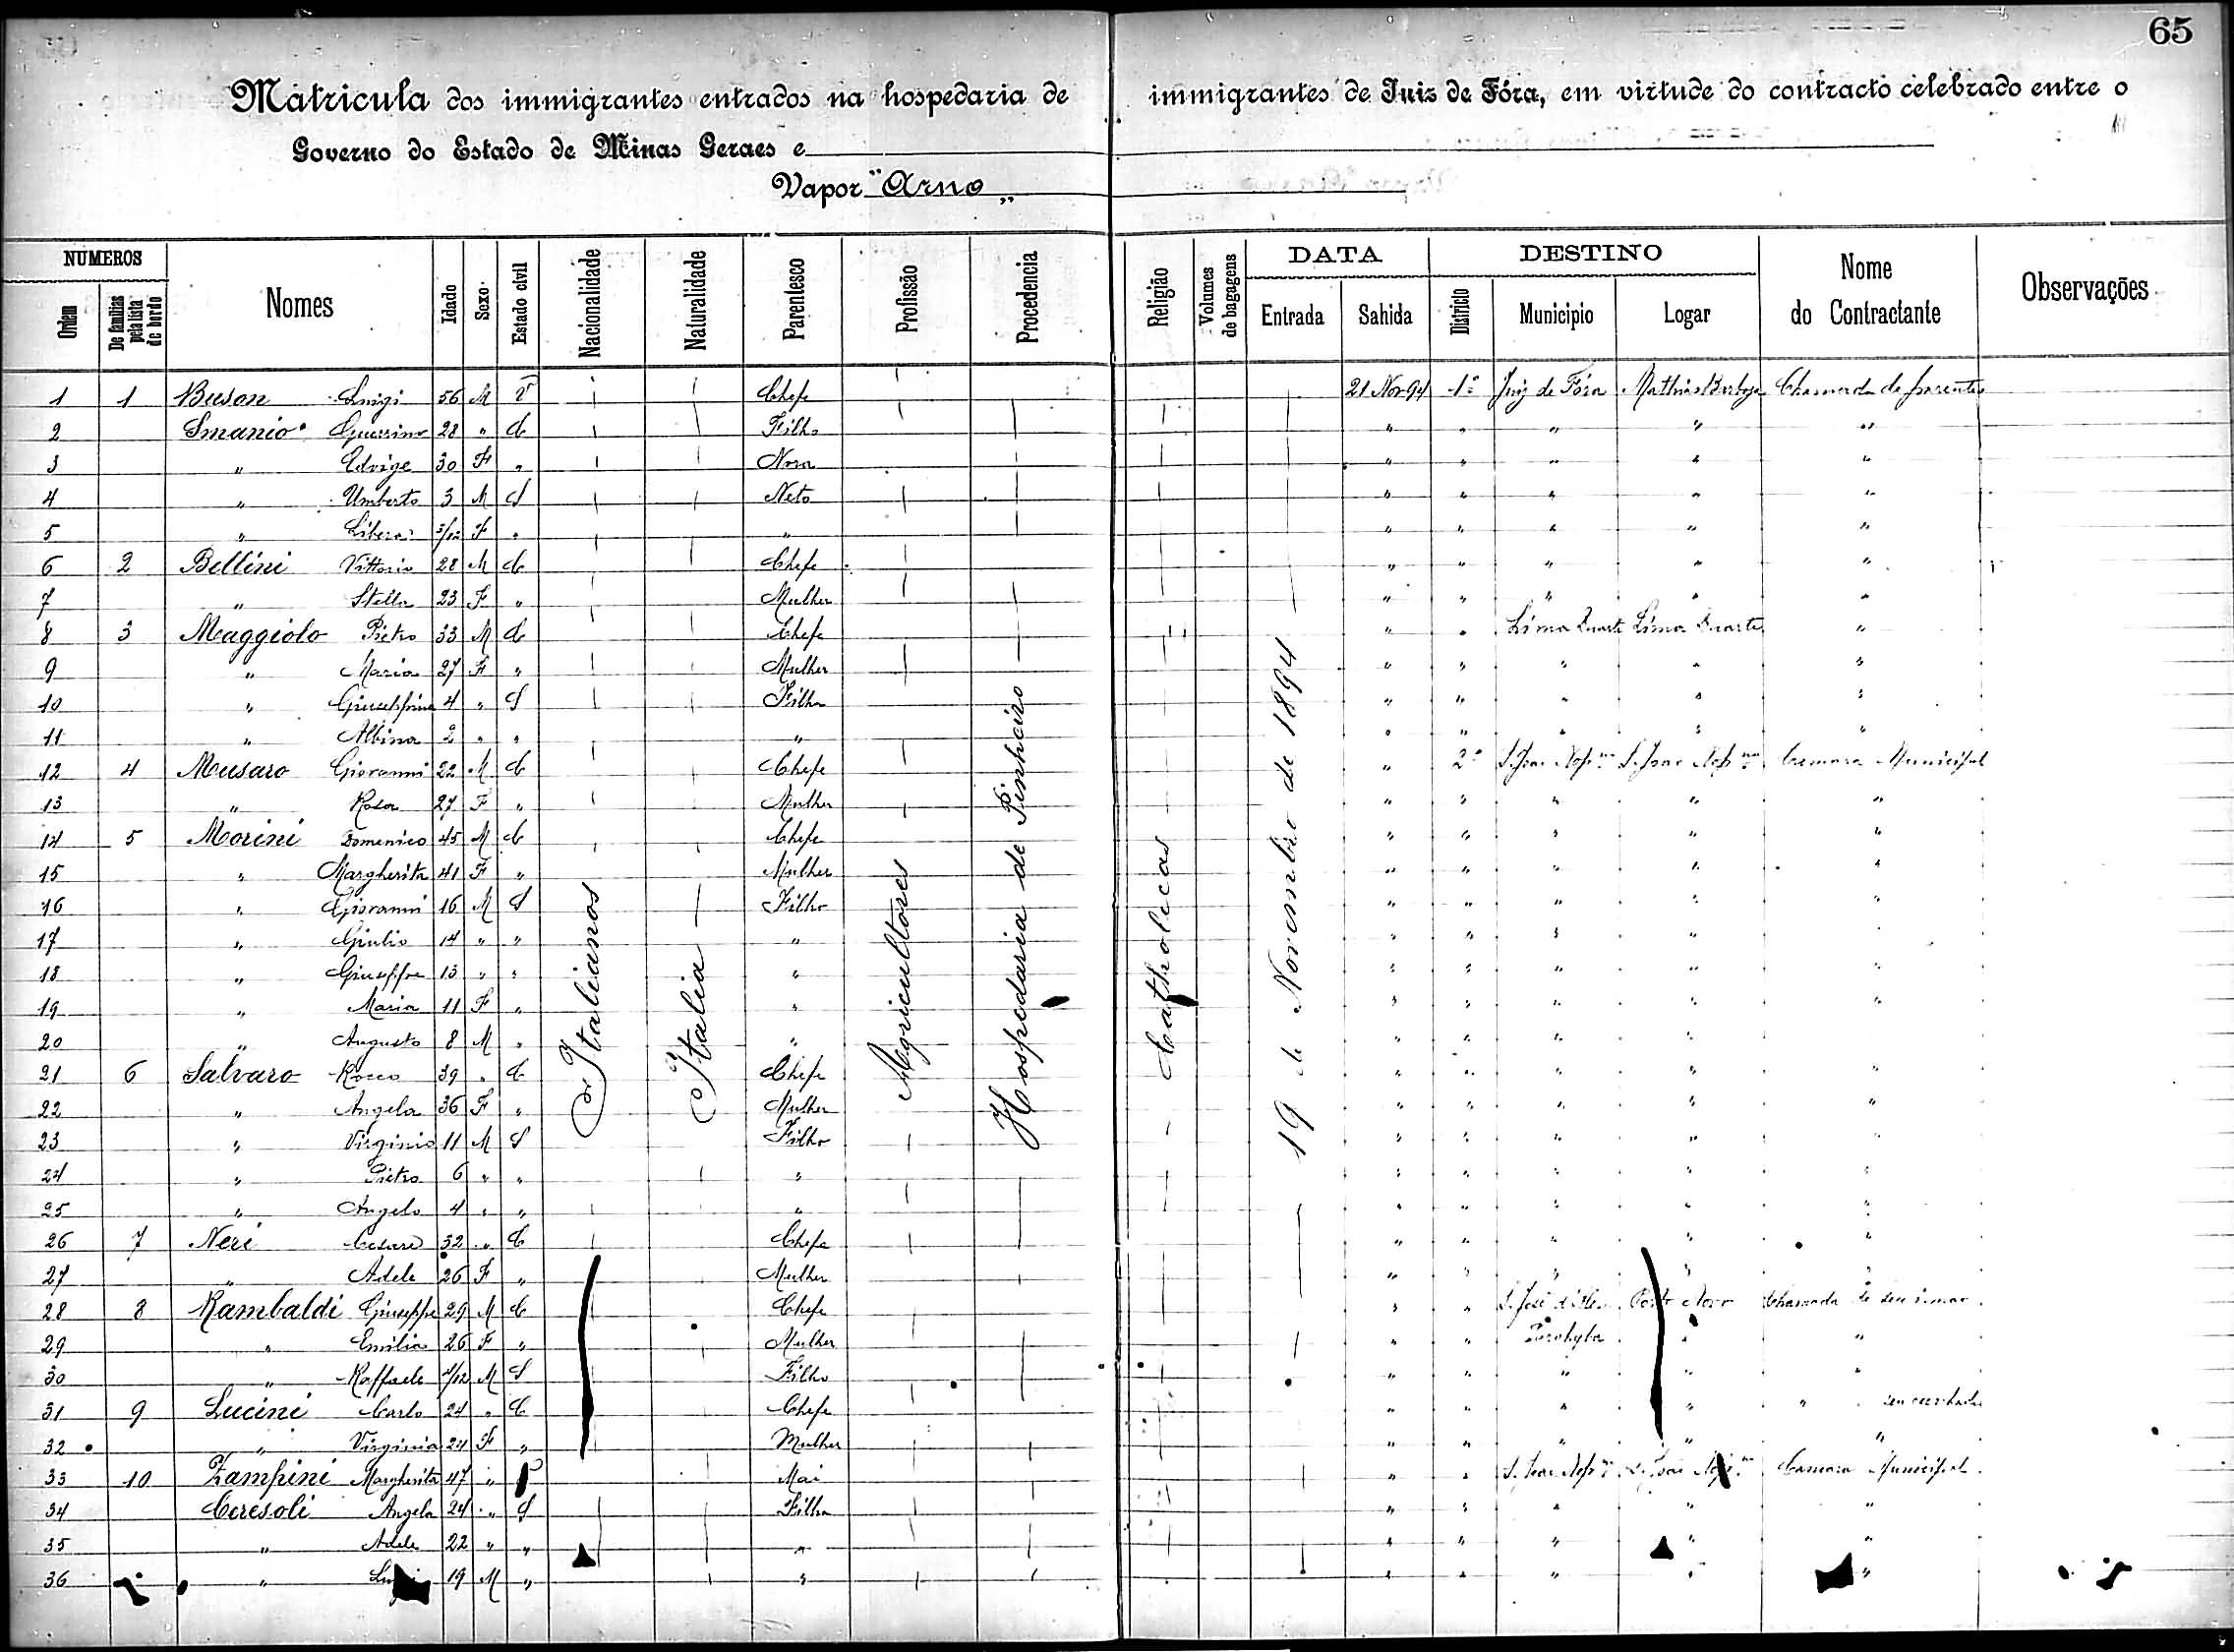 65
Matricula dos immigrantes entrados na hospedaria de immigrantes de Juiz de Fóra, em virtude do contracto celebrado entre o
Governo do Estado de Minas Geraes e
Vapor "Arno"
NUMEROS Nomes Idade Sexo Estado civil Nacionalidade Naturalidade Parentesco Profissão Procedencia Religião Volumes de bagagens DATA DESTINO Nome do Contractante Observações
Ordem De familias pela lista de bordo Entrada Sahida Districto Municipio Logar
Italianos Italia Agricultores Hospedaria de Pinheiro Catholicas 19 de Novembro de 1894
1 1 Buson Luigi 56 M V Chefe 21 Nov 94 1º Juiz de Fóra Mathias Barbosa Chamada de parentes
2 Smanio Guerrino 28 " C Filho " " " " "
3 " Edvige 30 F " Nora " " " " "
4 " Umberto 3 M S Neto " " " " "
5 " Libera /12 F " " " " " " "
6 2 Bellini Vittorio 28 M C Chefe " " " " "
7 " Stella 23 F " Mulher " " " " "
8 3 Maggiolo Pietro 33 M C Chefe " " Lima Duarte Lima Duarte "
9 " Maria 27 F " Mulher " " " " "
10 " Giuseppina 4 " S Filha " " " " "
11 " Albina 2 " " " " " " " "
12 4 Musaro Giovanni 22 M C Chefe " 2º S. Joao Nep.no S. Joao Nep.no Camara Municipal
13 " Rosa 27 F " Mulher " " " " "
14 5 Morini Domenico 45 M C Chefe " " " " "
15 " Margherita 41 F " Mulher " " " " "
16 " Giovanni 16 M S Filho " " " " "
17 " Giulio 14 " " " " " " " "
18 " Giuseppe 13 " " " " " " " "
19 " Maria 11 F " " " " " " "
20 " Augusto 8 M " " " " " " "
21 6 Salvaro Rocco 39 " C Chefe " " " " "
22 " Angela 36 F " Mulher " " " " "
23 " Virginio 11 M S Filho " " " " "
24 " Pietro 6 " " " " " " " "
25 " Angelo 4 " " " " " " " "
26 7 Neri Cesare 32 " C Chefe " " " " "
27 " Adele 26 F " Mulher " " " " "
28 8 Rambaldi Giuseppe 29 M C Chefe " " S. José d'Além Porto Novo Chamada de seu irmao
29 " Emilia 26 F " Mulher " " Parahyba " "
30 " Raffaele /12 M S Filho " " " " "
31 9 Lucini Carlo 24 " C Chefe " " " " " seu cunhado
32 " Virginia 24 F " Mulher " " " " "
33 10 Zampini Margherita 47 " Mai " " S. Joao Nep.no S. Joao Nep.no Camara Municipal
34 Ceresoli Angela 24 " S Filha " " " " "
35 " Adele 22 " " " " " " " "
36 " 19 M " " " " " " "